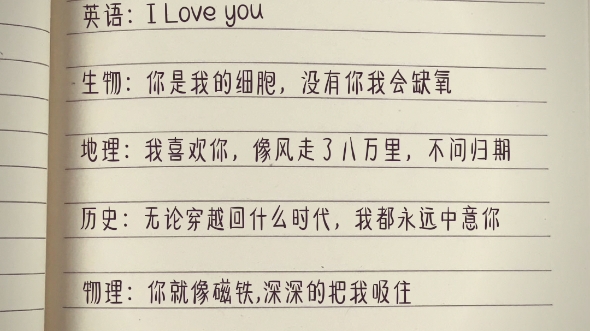 英语：I Love you
生物：你是我的细胞，没有你我会缺氧
地理：我喜欢你，像风走了八万里，不问归期
历史：无论穿越回什么时代，我都永远中意你
物理：你就像磁铁,深深的把我吸住